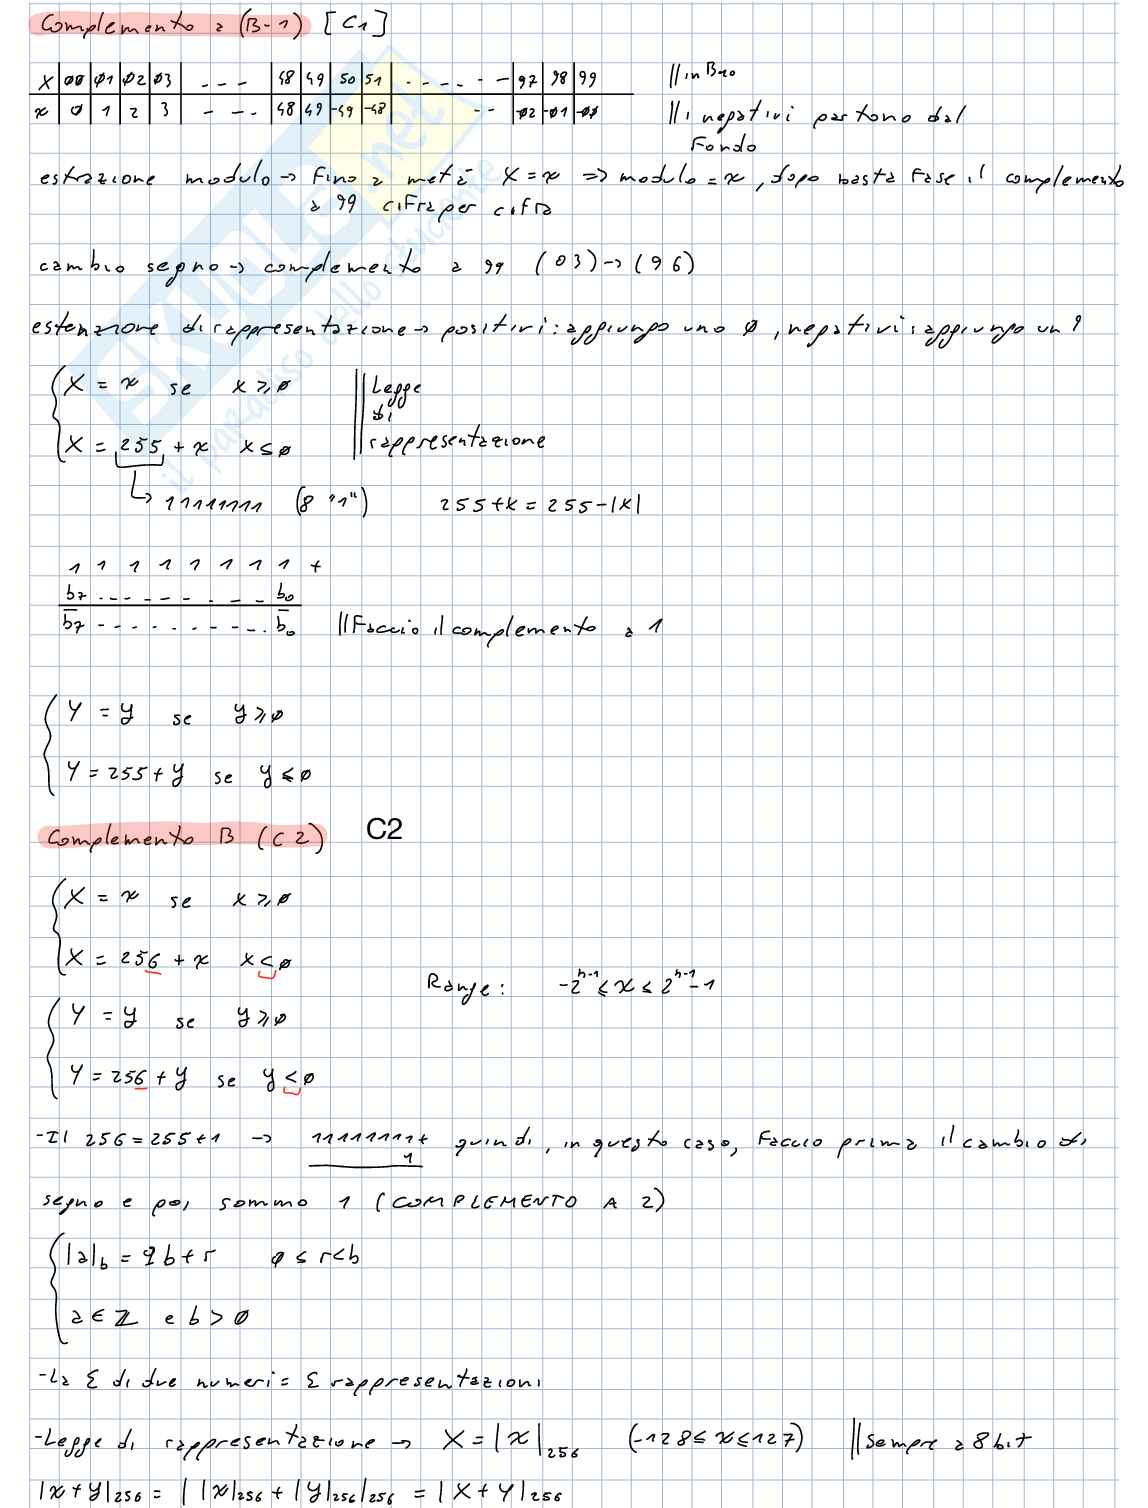 Complemento a (B-1) [C1]
X | 00 | 01 | 02 | 03 | - - - | 48 | 49 | 50 | 51 | - - - - - - | 97 | 98 | 99 //in B=10
x | 0 | 1 | 2 | 3 | - - - | 48 | 49 | -49 | -48 | - - | -02 | -01 | -00 //i negativi partono dal
fondo
estrazione modulo → Fino a metà X = x => modulo = x, dopo basta fase il complemento
a 99 cifra per cifra
cambio segno → complemento a 99 (03) → (96)
estenzione di rappresentazione → positivi: aggiungo uno 0, negativi: aggiungo un 9
X = x se x ≥ 0 || Legge
di
X = 255 + x x ≤ 0 rappresentazione
↳ 11111111 (8 "1") 255+x = 255-|x|
1 1 1 1 1 1 1 1 +
b₇ - - - - - - - - b₀
b̅₇ - - - - - - - - b̅₀ //Faccio il complemento a 1
Y = y se y ≥ 0
Y = 255 + y se y ≤ 0
Complemento B (C2) C2
X = x se x ≥ 0
X = 256 + x x ≤ 0
Range: -2ⁿ⁻¹ ≤ x ≤ 2ⁿ⁻¹-1
Y = y se y ≥ 0
Y = 256 + y se y ≤ 0
-Il 256 = 255+1 → 11111111+ quindi, in questo caso, faccio prima il cambio di
1
segno e poi sommo 1 (COMPLEMENTO A 2)
|a|b = qb + r 0 ≤ r < b
a ∈ ℤ e b > 0
-La Σ di due numeri = Σ rappresentazioni
-Legge di rappresentazione → X = |x|₂₅₆ (-128 ≤ x ≤ 127) ||Sempre a 8 bit
|x+y|₂₅₆ = | |x|₂₅₆ + |y|₂₅₆|₂₅₆ = |X+Y|₂₅₆
SKUOLA.net
il paradiso dello studente